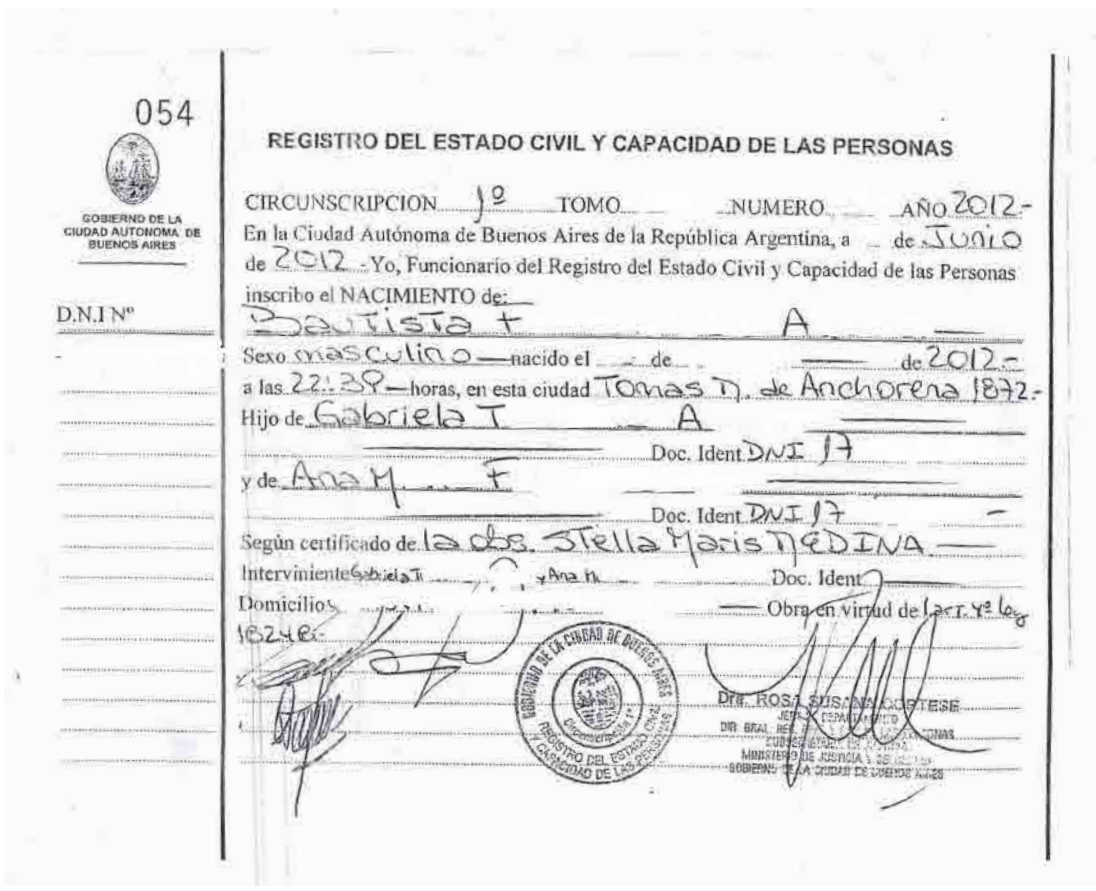 054
GOBIERNO DE LA
CIUDAD AUTONOMA DE
BUENOS AIRES
D.N.I Nº
REGISTRO DEL ESTADO CIVIL Y CAPACIDAD DE LAS PERSONAS
CIRCUNSCRIPCION 1º TOMO NUMERO AÑO 2012.-
En la Ciudad Autónoma de Buenos Aires de la República Argentina, a de Junio
de 2012 - Yo, Funcionario del Registro del Estado Civil y Capacidad de las Personas
inscribo el NACIMIENTO de:
Bautista F A
Sexo masculino nacido el de de 2012.-
a las 22:39 horas, en esta ciudad Tomas M. de Anchorena 1872.-
Hijo de Gabriela T A
Doc. Ident DNI 17
y de Ana M F
Doc. Ident DNI 17 -
Según certificado de la obs. Stella Maris MEDINA
Interviniente Gabriela T y Ana M. Doc. Ident
Domicilio Obra en virtud de l art. 4º ley
18248.-
GOBIERNO DE LA CIUDAD DE BUENOS AIRES
REGISTRO DEL ESTADO CIVIL
Y CAPACIDAD DE LAS PERSONAS
Dra. ROSA SUSANA CORTESE
MINISTERIO DE JUSTICIA Y
GOBIERNO DE LA CIUDAD DE BUENOS AIRES